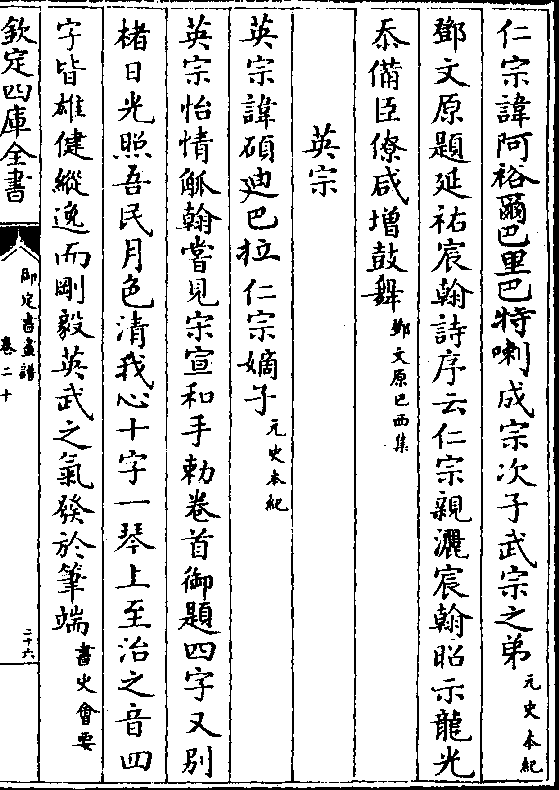 仁宗諱阿裕爾巴里巴特喇成宗次子武宗之弟元史本紀
鄧文原題延祐宸翰詩序云仁宗親灑宸翰昭示龍光
忝備臣僚咸增鼓舞鄧文原巴西集
英宗
英宗諱碩迪巴拉仁宗嫡子元史本紀
英宗怡情觚翰嘗見宋宣和手勅卷首御題四字又別
楮日光照吾民月色清我心十字一琴上至治之音四
字皆雄健縱逸而剛毅英武之氣發於筆端書史會要
欽定四庫全書
御定書畫譜
卷二十
二十六